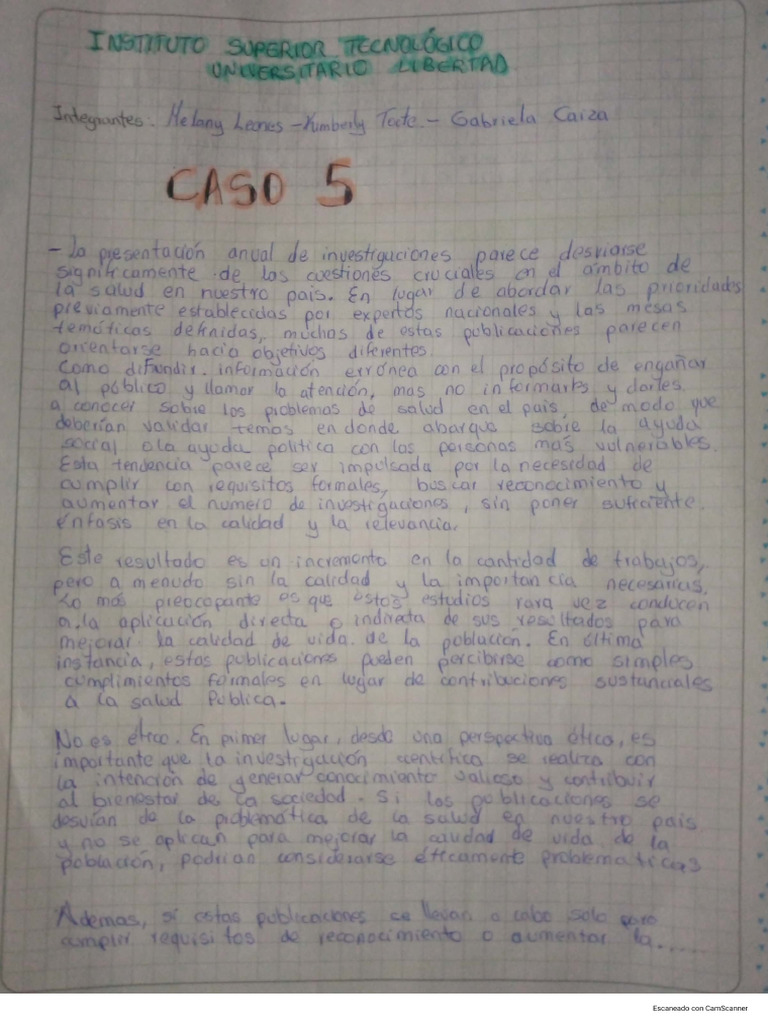 INSTITUTO SUPERIOR TECNOLÓGICO
UNIVERSITARIO LIBERTAD
Integrantes: Melany Leones - Kimberly Toate - Gabriela Caiza
CASO 5
- La presentación anual de investigaciones parece desviarse
significamente de las cuestiones cruciales en el ámbito de
la salud en nuestro país. En lugar de abordar las prioridades
previamente establecidas por expertos nacionales y las mesas
temáticas definidas, muchos de estas publicaciones parecen
orientarse hacia objetivos diferentes.
Como difundir información errónea con el propósito de engañar
al público y llamar la atención, mas no informarles y darles
a conocer sobre los problemas de salud en el país, de modo que
deberían validar temas en donde abarque sobre la ayuda
social o la ayuda politica con las personas más vulnerables.
Esta tendencia parece ser impulsada por la necesidad de
cumplir con requisitos formales, buscar reconocimiento y
aumentar el numero de investigaciones, sin poner suficiente
énfasis en la calidad y la relevancia.
Este resultado es un incremento en la cantidad de trabajos,
pero a menudo sin la calidad y la importancia necesarias.
Lo más preocupante es que estos estudios rara vez conducen
a la aplicación directa o indirecta de sus resultados para
mejorar la calidad de vida de la población. En última
instancia, estas publicaciones pueden percibirse como simples
cumplimientos formales en lugar de contribuciones sustanciales
a la salud Pública.
No es ético. En primer lugar, desde una perspectiva ética, es
importante que la investigación científica se realiza con
la intención de generar conocimiento valioso y contribuir
al bienestar de la sociedad. Si las publicaciones se
desvían de la problemática de la salud en nuestro país
y no se aplican para mejorar la calidad de vida de la
población, podrían considerarse éticamente problematicas
Ademas, si estas publicaciones se llevan a cabo solo para
cumplir requisitos de reconocimiento o aumentar la.....
Escaneado con CamScanner